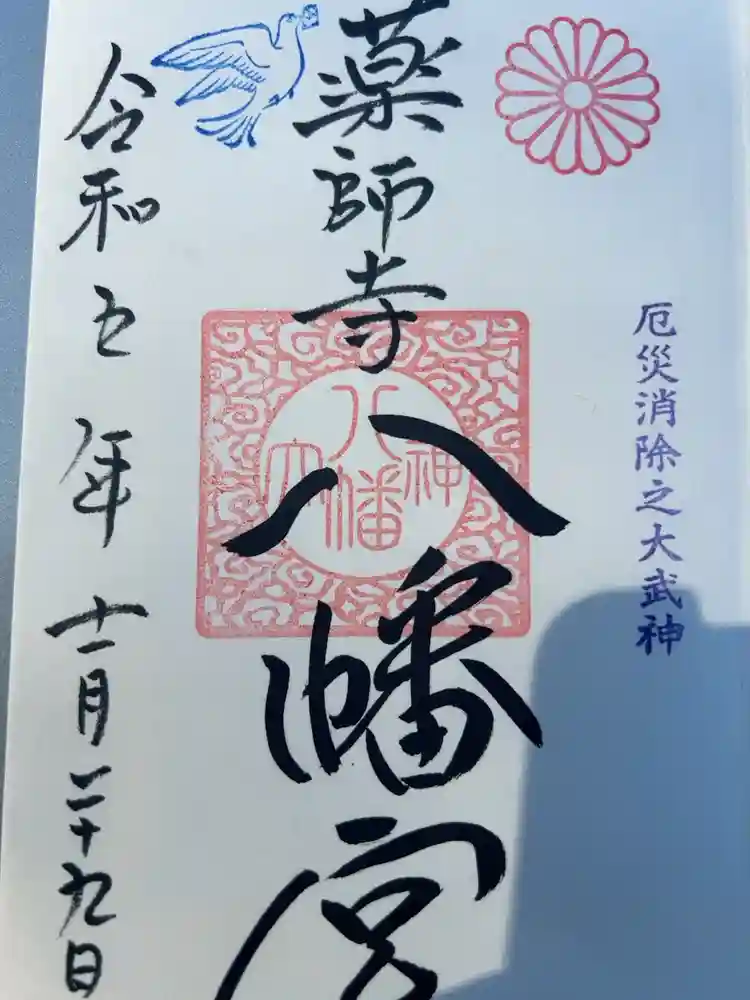 厄災消除之大武神
薬師寺
八幡宮
令和五年十一月二十九日